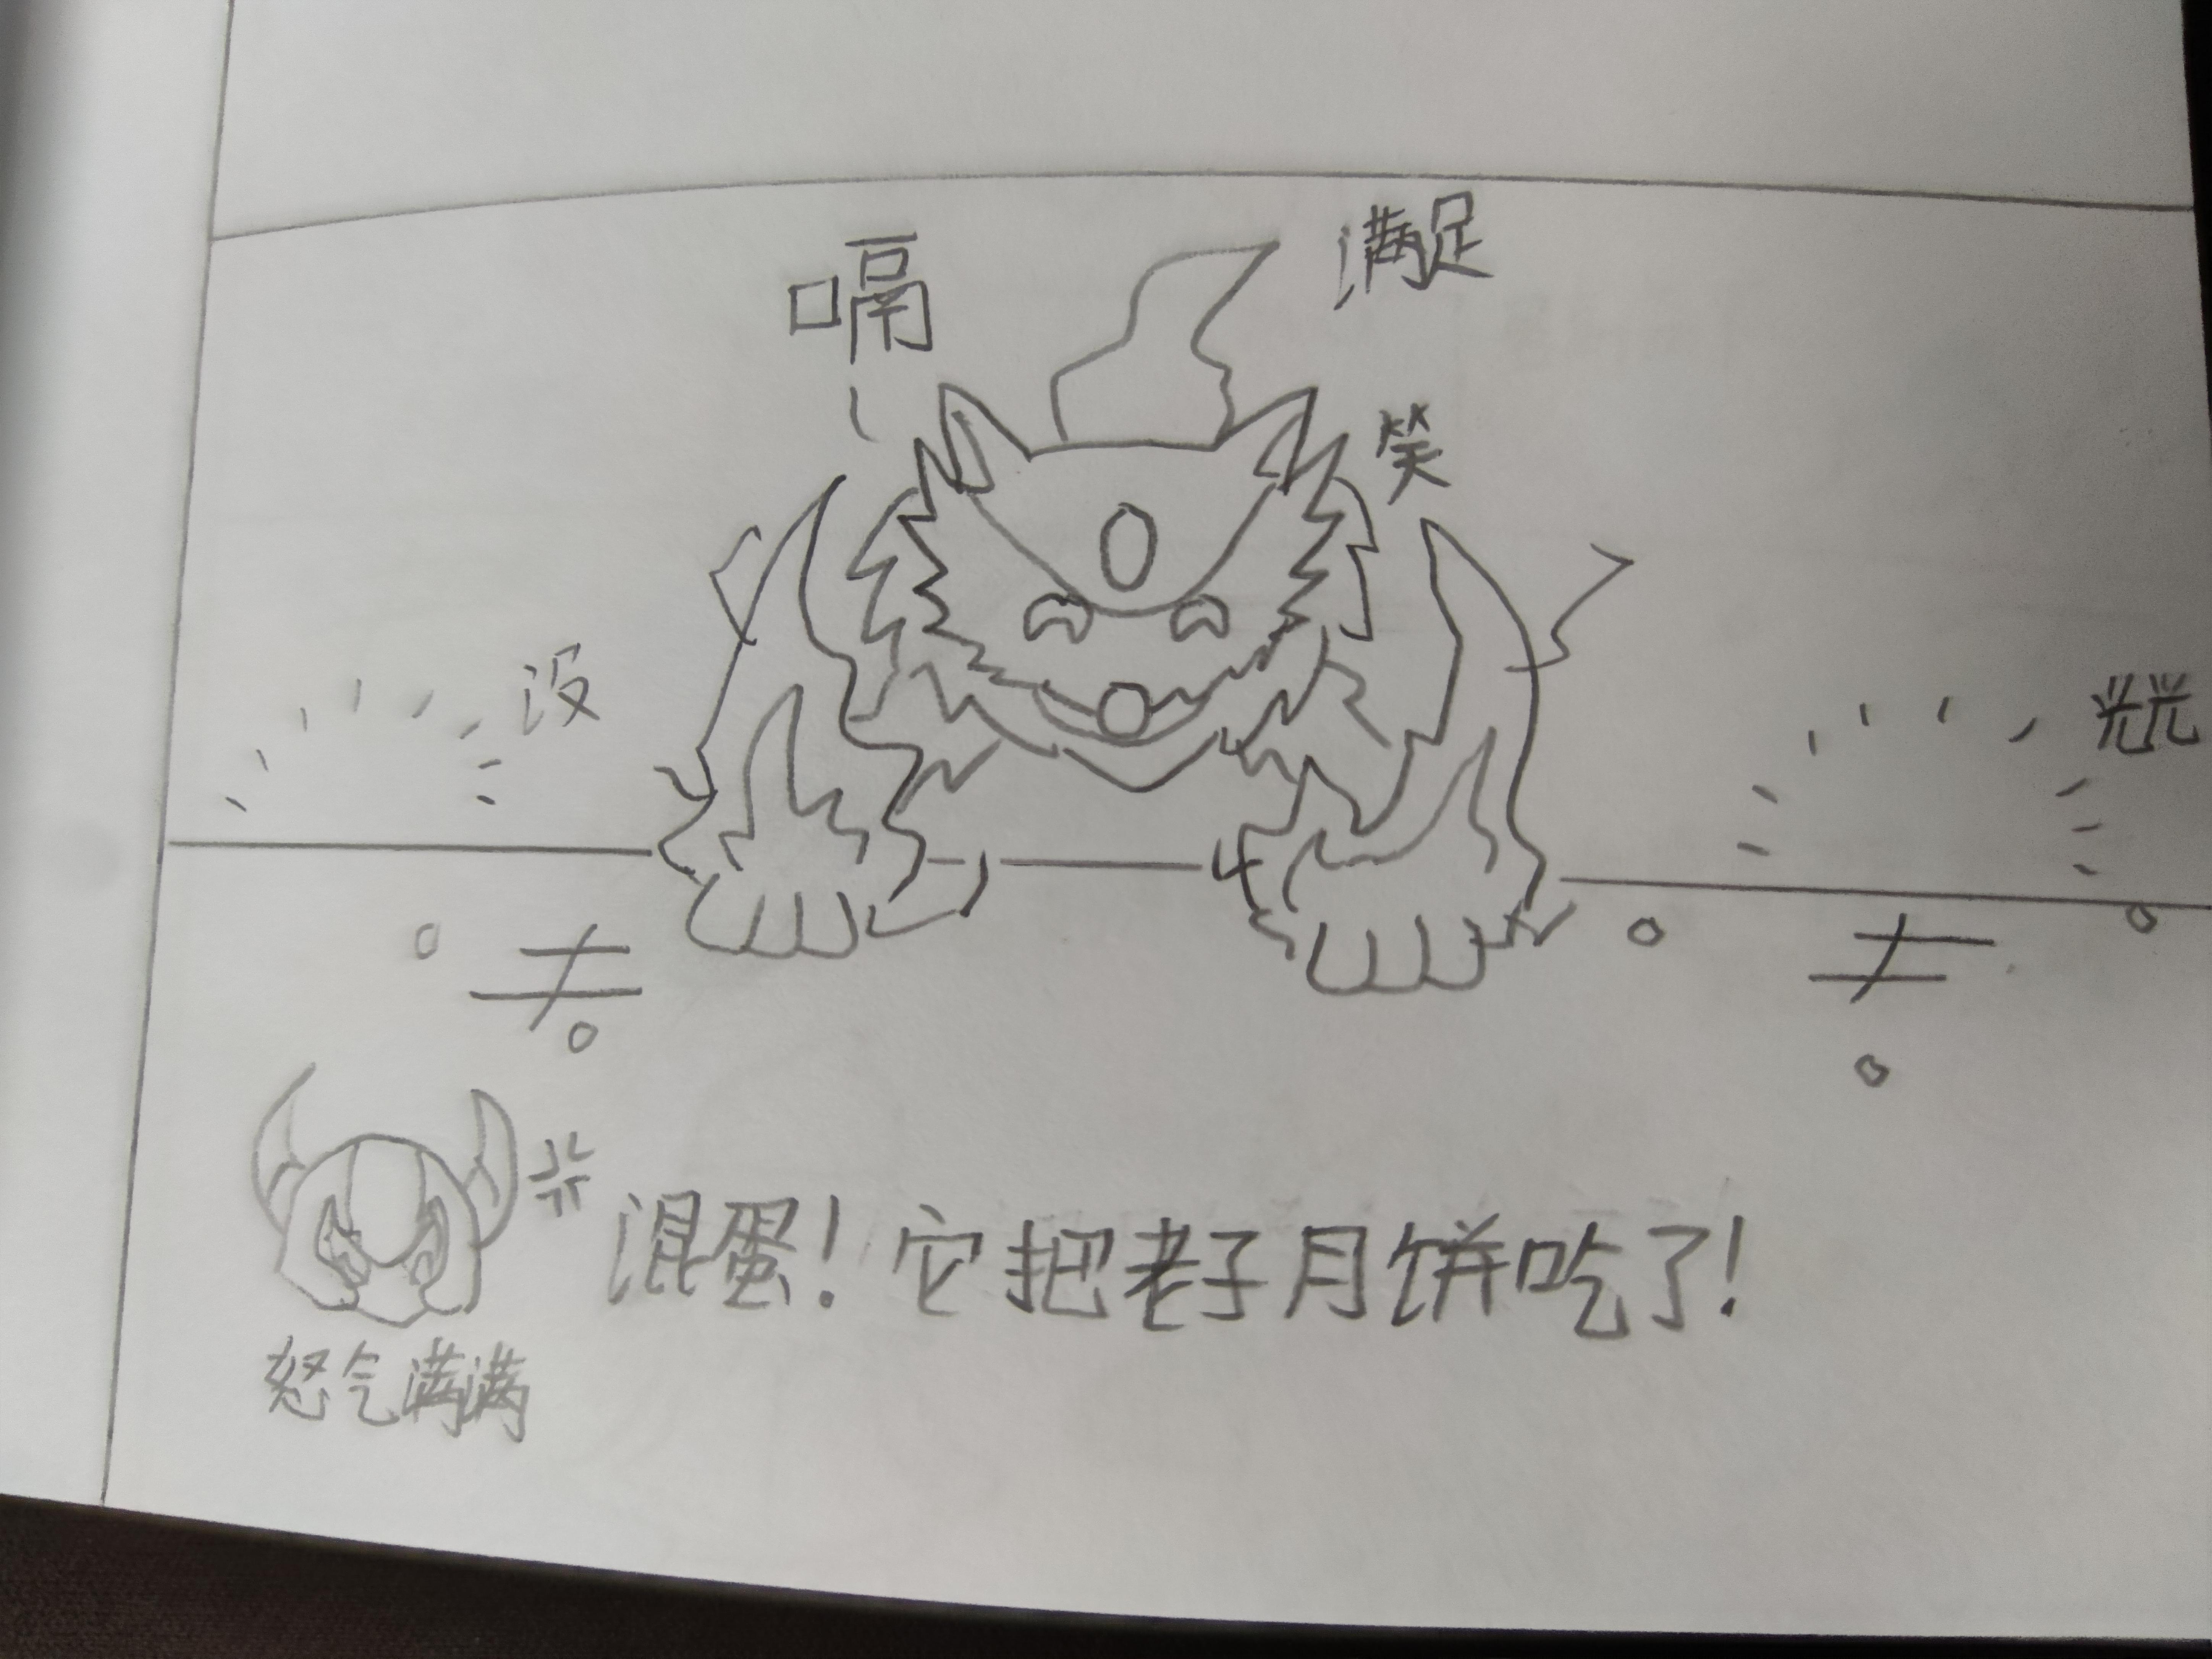 嗝
满足
笑
没
光光
混蛋！它把老子月饼吃了！
怒气满满